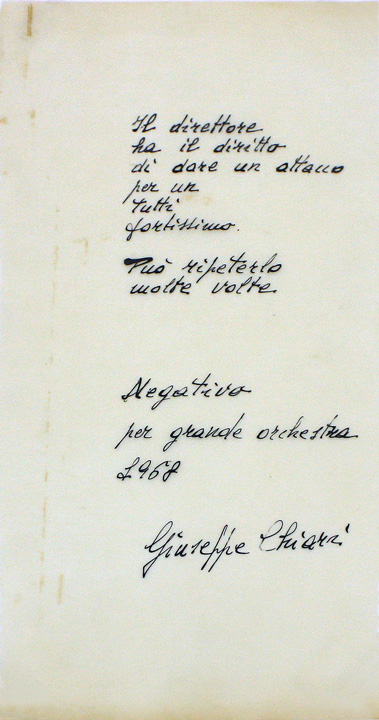 Il direttore
ha il diritto
di dare un attacco
per un
tutti
fortissimo.
Può ripeterlo
molte volte
Negativo
per grande orchestra
1968
Giuseppe Chiari